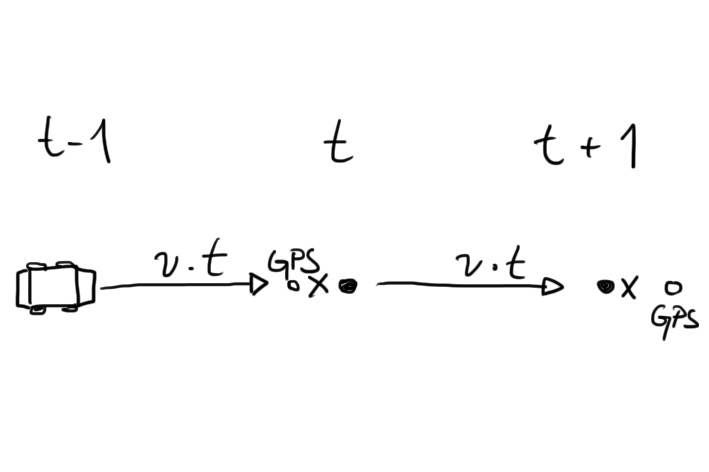 t-1 t t+1
v.t GPS v.t
x x
GPS